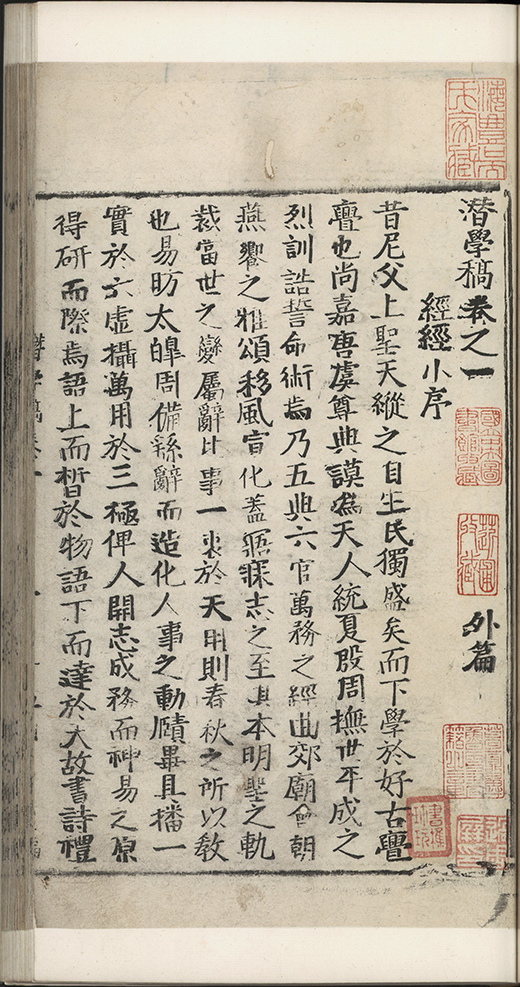 潛學稿卷之一 外篇
經經小序
昔尼父上聖天縱之自生民獨盛矣而下學於好古亹
亹也尚嘉唐虞尊典謨為天人統夏殷周撫世平成之
烈訓誥誓命術焉乃五典六官萬務之經曲郊廟會朝
燕饗之雅頌移風宣化蓋寤寐志之至其本明聖之軌
裁當世之變屬辭比事一衷於天用則春秋之所以教
也易昉太皥周備繇辭而造化人事之動賾畢具播一
實於六虛攝萬用於三極俾人開志成務而神易之原
得研而際焉語上而晢於物語下而達於大故書詩禮